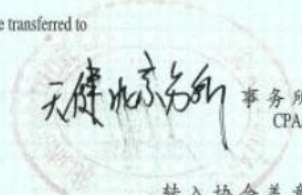 e transferred to
天健北京分所 事务所
CPA
转入协会盖